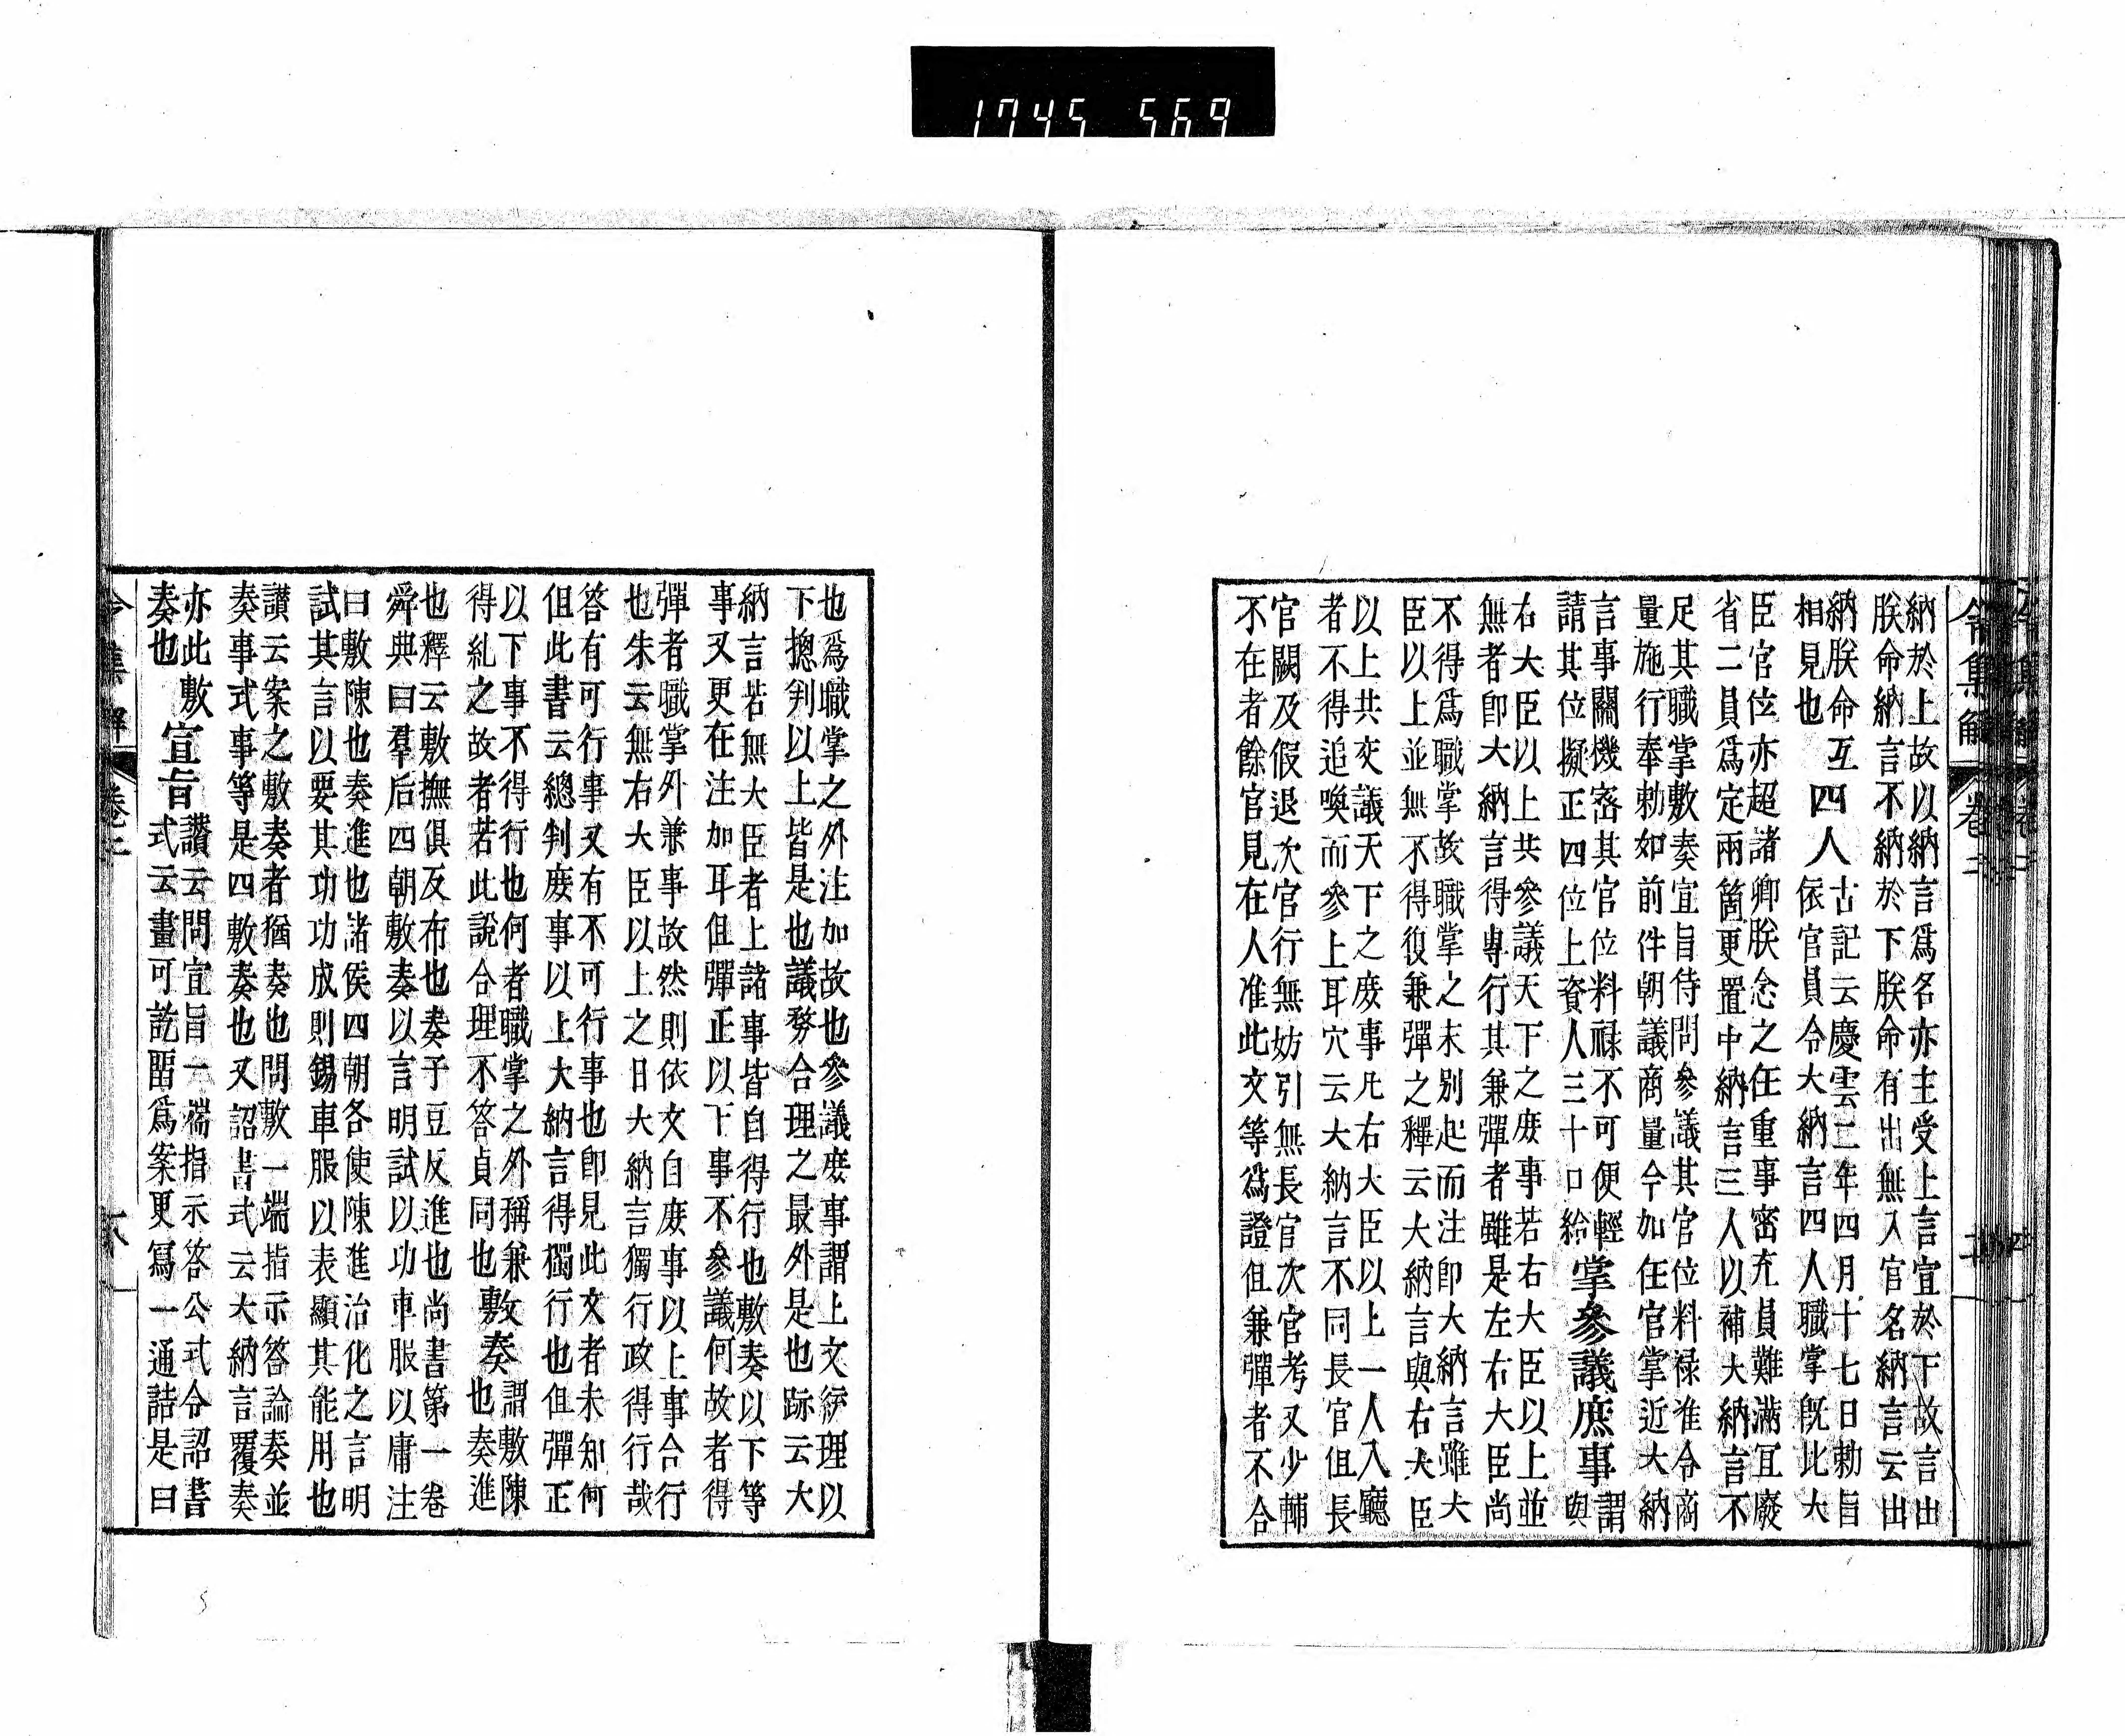 1745 569
令集解 卷二
納於上故以納言爲名亦主受上言宣於下故言出
朕命納言不納於下朕命有出無入官名納言云出
納朕命互
相見也
四人
古記云慶雲二年四月十七日勅旨
依官員令大納言四人職掌既比大
臣官位亦超諸卿朕念之任重事密充員難滿宜廢
省二員爲定兩箇更置中納言三人以補大納言不
足其職掌敷奏宣旨待問參議其官位料禄准令商
量施行奉勅如前件朝議商量今加任官掌近大納
言事關機密其官位料祿不可便輕
請其位擬正四位上資人三十口給
掌參議庶事
謂
與
右大臣以上共參議天下之庶事若右大臣以上並
無者卽大納言得專行其兼彈者雖是左右大臣尚
不得爲職掌故職掌之末別起而注卽大納言雖大
臣以上並無不得復兼彈之釋云大納言與右大臣
以上共交議天下之庶事凡右大臣以上一人入廳
者不得追喚而參上耳穴云大納言不同長官但長
官闕及假退次官行無妨引無長官次官考又少輔
不在者餘官見在人准此文等爲證但兼彈者不合
也爲職掌之外注加故也參議庶事謂上文綍理以
下摠判以上皆是也議務合理之最外是也跡云大
納言若無大臣者上諸事皆自得行也敷奏以下等
事又更在注加耳但彈正以下事不參議何故者得
彈者職掌外兼事故然則依文自庶事以上事合行
也朱云無右大臣以上之日大納言獨行政得行哉
答有可行事又有不可行事也卽見此文者未知何
但此書云總判庶事以上大納言得獨行也但彈正
以下事不得行也何者職掌之外稱兼
得糺之故者若此說合理不答貞同也
敷奏
謂敷陳
也奏進
也釋云敷撫俱反布也奏予豆反進也尚書第一卷
舜典曰羣后四朝敷奏以言明試以功車服以庸注
曰敷陳也奏進也諸侯四朝各使陳進治化之言明
試其言以要其功功成則錫車服以表顯其能用也
讃云案之敷奏者猶奏也問敷一端指示答論奏並
奏事式事等是四敷奏也又詔書式云大納言覆奏
亦此敷
奏也
宣旨
讃云問宣旨一端指示答公式令詔書
式云畫可訖畱爲案更寫一通誥是曰
令集解 卷二